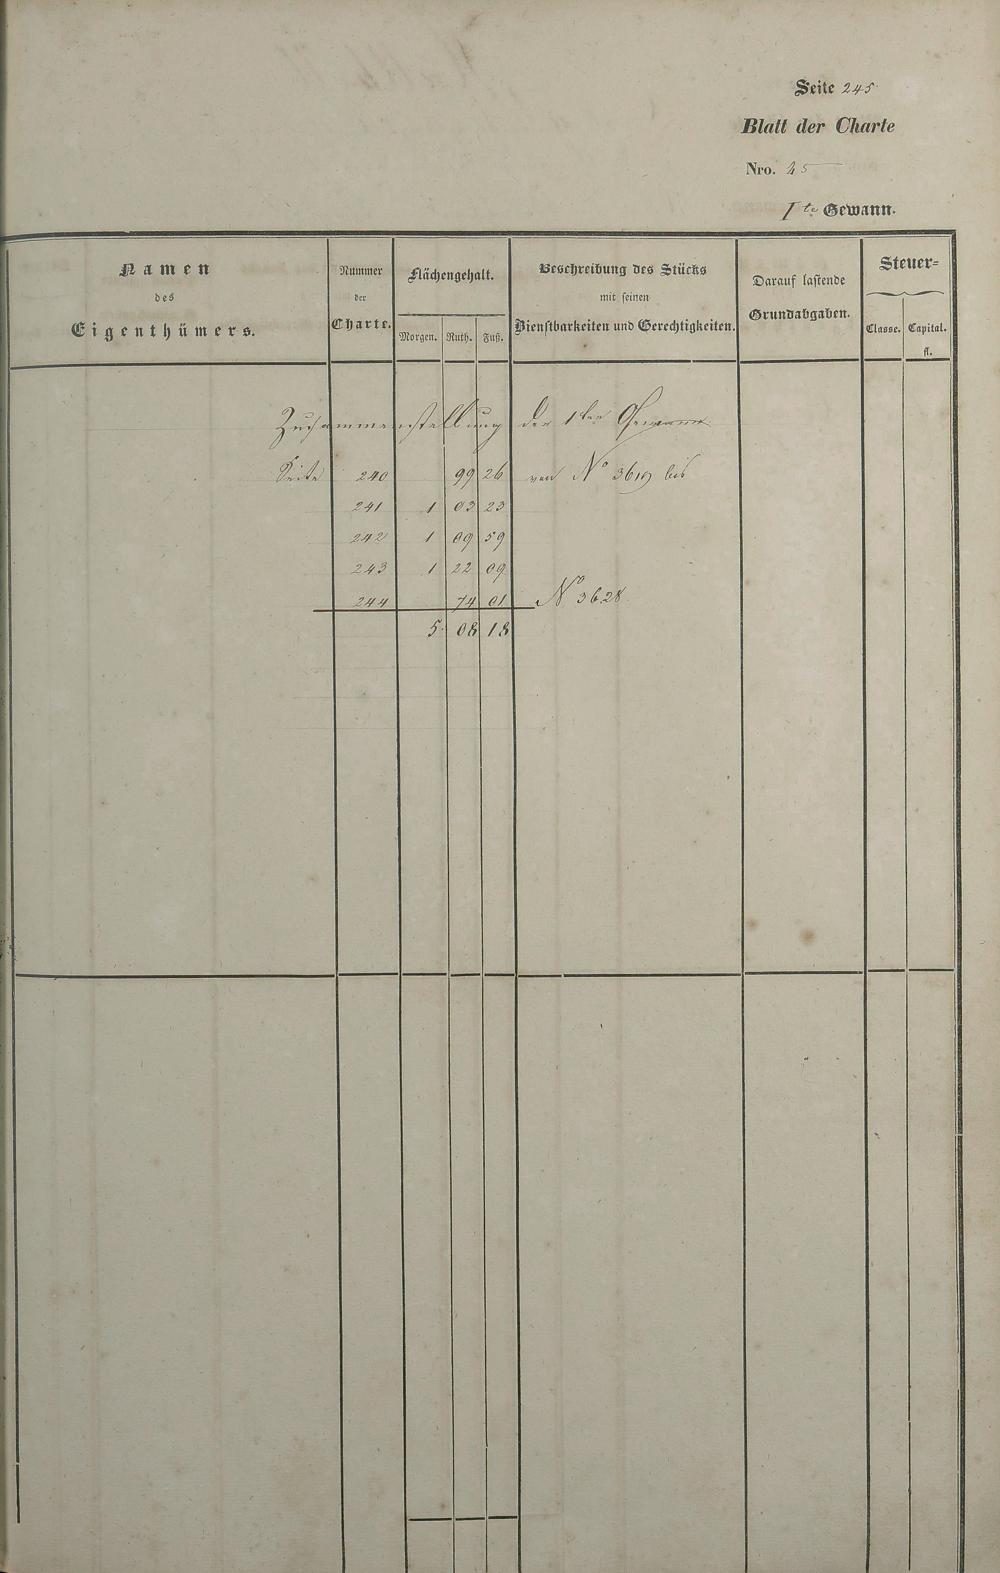 Seite 245
Blatt der Charte
Nro. 25
Ite Gewann.
Namen des Eigenthümers.
Nummer der Charte.
Flächengehalt.
Morgen. Ruth. Fuß.
Beschreibung des Stücks mit seinen Dienstbarkeiten und Gerechtigkeiten.
Darauf lastende Grundabgaben.
Steuer=
Classe. Capital.
fl.
Zusammenstellung der 1ten Gewann
Seite 240 99 26 von No 3619 bis
241 1 03 23
242 1 09 59
243 1 22 09
244 74 01 No 3628
5 08 18